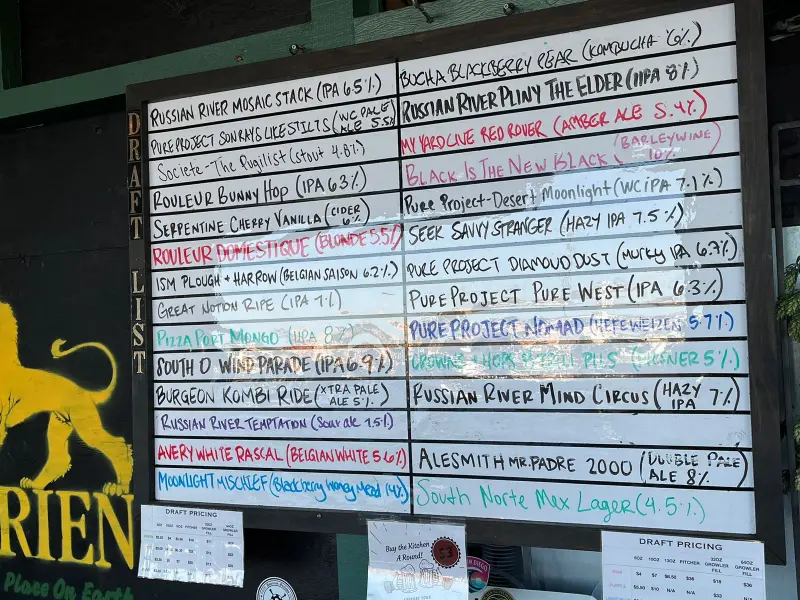 DRAFT LIST
RUSSIAN RIVER MOSAIC STACK (IPA 6.5%)
PURE PROJECT SONRAYS LIKE STILTS (WC PALE ALE 5.5%)
Societe - The Pugilist (Stout 4.8%)
ROULEUR BUNNY HOP (IPA 6.3%)
SERPENTINE CHERRY VANILLA (CIDER 6%)
ROULEUR DOMESTIQUE (BLONDE 5.5%)
ISM PLOUGH + HARROW (BELGIAN SAISON 6.2%)
GREAT NOTION RIPE (IPA 7%)
PIZZA PORT MONGO (IIPA
SOUTH O WIND PARADE (IPA 6.9%)
BURGEON KOMBI RIDE (XTRA PALE ALE 5%)
RUSSIAN RIVER TEMPTATION (Sour ale 7.5%)
AVERY WHITE RASCAL (BELGIAN WHITE 5.6%)
MOONLIGHT MISCHIEF (Blackberry Honey Mead 14%)
BUCHA BLACKBERRY PEAR (KOMBUCHA
RUSSIAN RIVER PLINY THE ELDER (IIPA 8%)
MY YARD LIVE RED ROVER (AMBER ALE 5.4%)
BLACK IS THE NEW BLACK (BARLEYWINE 10%)
PURE PROJECT - DESERT MOONLIGHT (WC IPA 7.1%)
SEEK SAVVY STRANGER (HAZY IPA 7.5%)
PURE PROJECT DIAMOND DUST (MURKY IPA 6.7%)
PURE PROJECT PURE WEST (IPA 6.3%)
PURE PROJECT NOMAD (HEFEWEIZEN 5.7%)
CROWNS + HOPS PILS (PILSNER 5%)
RUSSIAN RIVER MIND CIRCUS (HAZY IPA 7%)
ALESMITH MR. PADRE 2000 (DOUBLE PALE ALE 8%)
South Norte Mex Lager (4.5%)
RIEN
Place On Earth
DRAFT PRICING
Buy the Kitchen
A Round!
$3
DRAFT PRICING